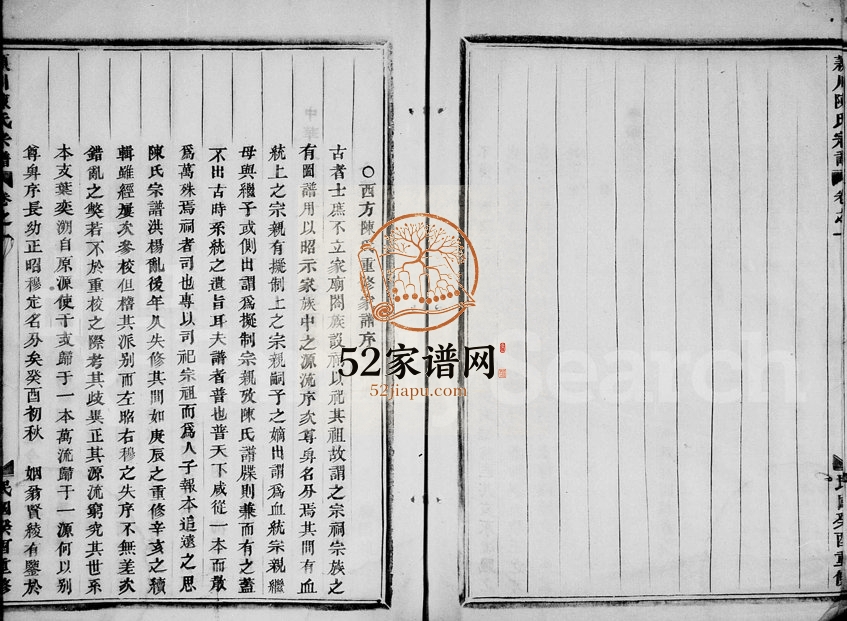 義川陳氏宗譜 卷之一
民國癸酉重修
○西方陳氏重修家譜序
古者士庶不立家廟閤族設祠以祀其祖故謂之宗祠宗族之
有圖譜用以昭示家族中之源流序次尊卑名分焉其間有血
統上之宗親有擬制上之宗親嗣子之嫡出謂爲血統宗親繼
母與繼子或側出謂爲擬制宗親攷陳氏譜牒則兼而有之蓋
不出古時系統之遺旨耳夫譜者普也普天下咸從一本而散
爲萬殊焉祠者司也專以司祀宗祖而爲人子報本追遠之思
陳氏宗譜洪楊亂後年久失修其間如庚辰之重修辛亥之續
輯雖經屢次參校但稽其派別而左昭右穆之失序不無差次
錯亂之獘若不於重校之際考其歧異正其源流窮究其世系
本支葉奕溯自原源使千支歸于一本萬流歸于一源何以別
尊卑序長幼正昭穆定名分矣癸酉初秋 姻翁賢綾有鑒於
義川陳氏宗譜 卷之一
民國癸酉重修
52家谱网
52jiapu.com